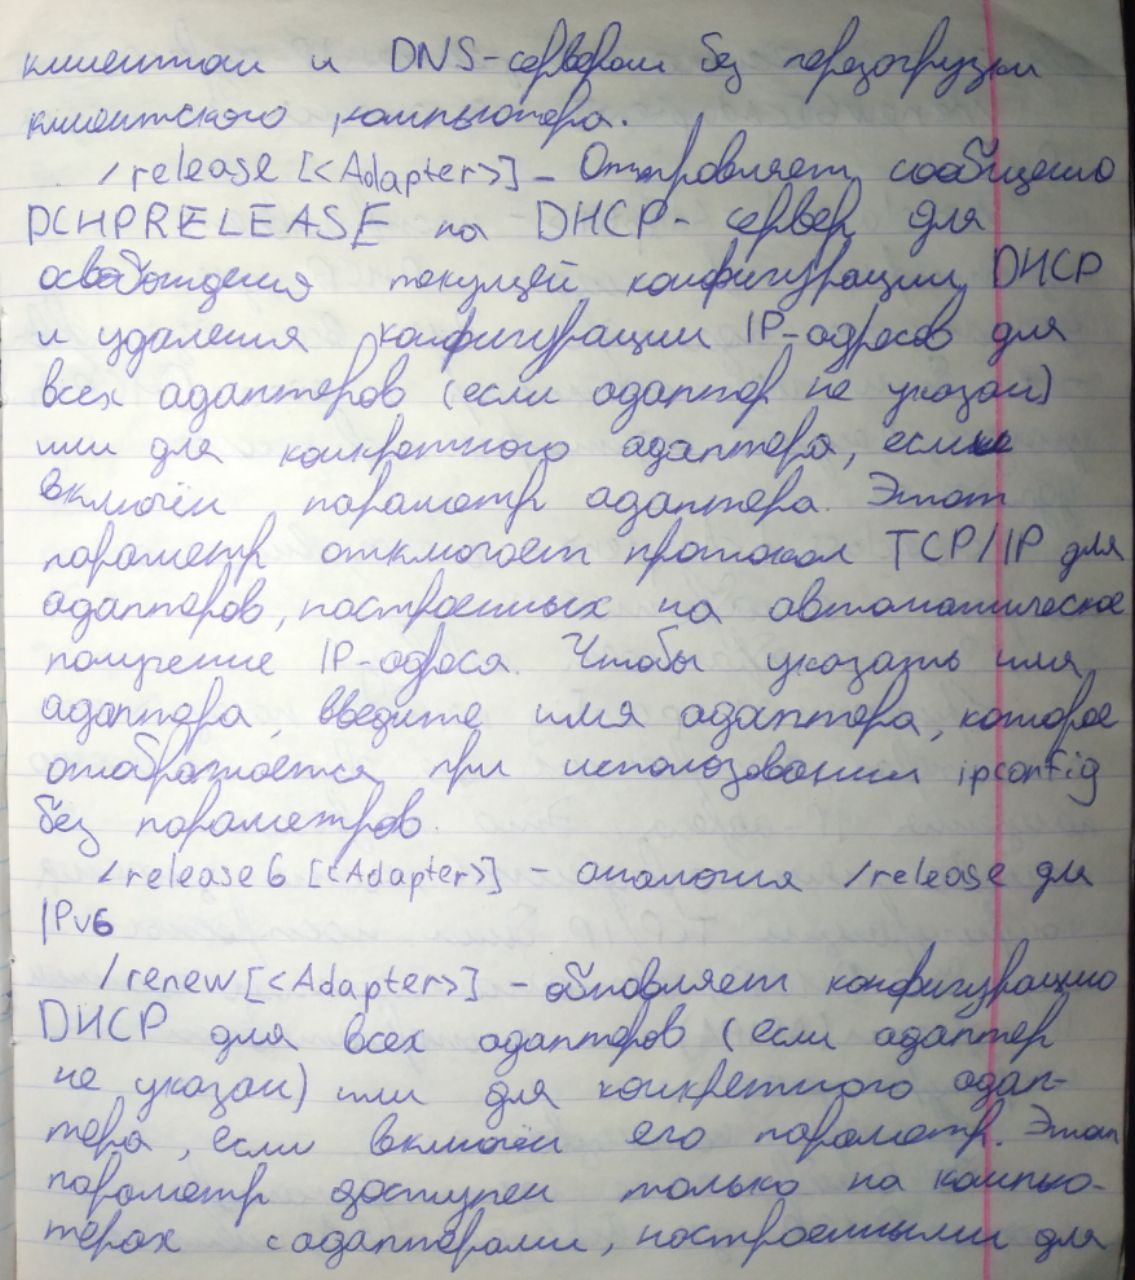 клиентом и DNS-сервером без перезагрузки
клиентского компьютера.
/release [<Adapter>] - Отправляет сообщению
DCHPRELEASE на DHCP-сервер для
освобождения текущей конфигурации DHCP
и удаления конфигурации IP-адресов для
всех адаптеров (если адаптер не указан)
или для конкретного адаптера, если
включён параметр адаптера. Этот
параметр отключает протокол TCP/IP для
адаптеров, настроенных на автоматическое
получение IP-адреса. Чтобы указать имя
адаптера, введите имя адаптера, которое
отображается при использовании ipconfig
без параметров.
/release6 [<Adapter>] - аналогия /release для
IPv6
/renew [<Adapter>] - обновляет конфигурацию
DHCP для всех адаптеров (если адаптер
не указан) или для конкретного адап-
тера, если включён его параметр. Этот
параметр доступен только на компью-
терах с адаптерами, настроенными для